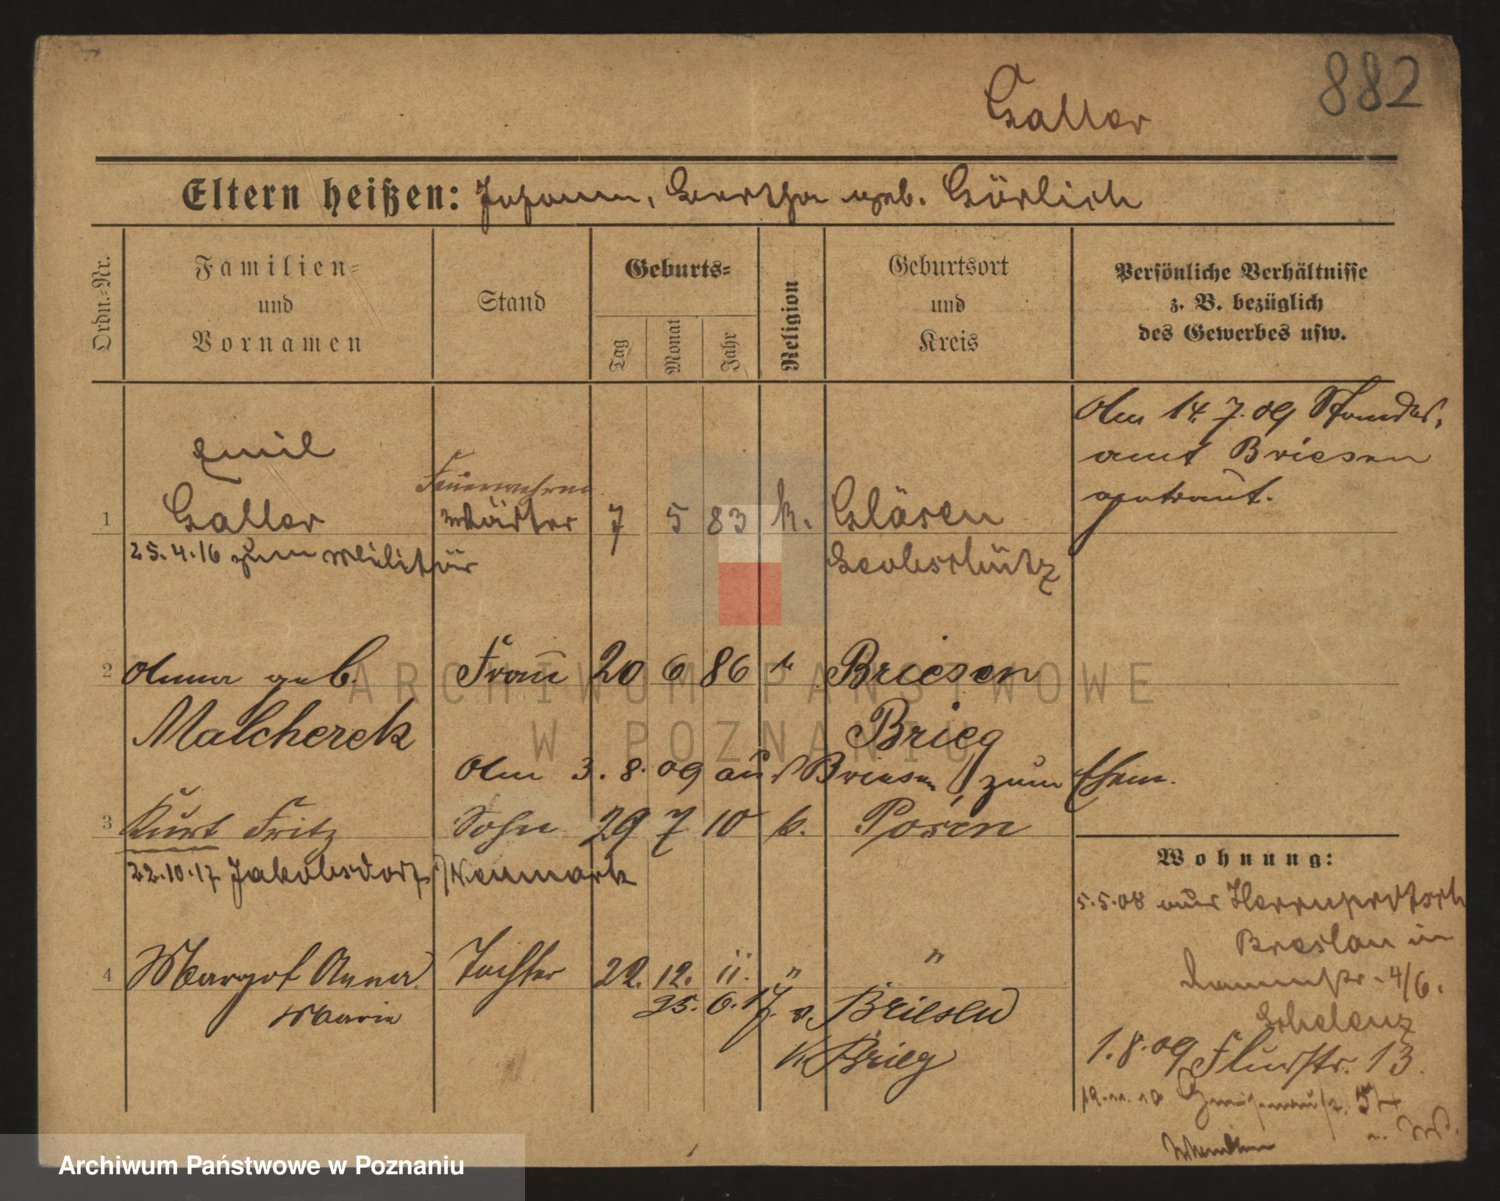 882
Galler
Eltern heißen: Johann, Bertha geb. Görlich
Ordn.-Nr.
Familien-
und
Vornamen
Stand
Geburts-
Tag
Monat
Jahr
Religion
Geburtsort
und
Kreis
Persönliche Verhältnisse
z. B. bezüglich
des Gewerbes usw.
Am 14.7.09 Standes-
amt Briesen
getraut.
Emil
Feuerwehrm
1 Galler Wärter 7 5 83 k. Gläsen
25.4.16 zum Militär Leobschütz
2 Anna geb. Frau 20 6 86 k Briesen
Malcherek Brieg
Am 3.8.09 aus Briesen zum Ehem.
3 Kurt Fritz Sohn 29 7 10 k. Posen
22.10.17 Jakobsdorf /Neumark
4 Margot Anna Tochter 22. 12. 11. " "
Marie 25. 6. 17. v. Briesen
K Brieg
Wohnung:
5.5.08 aus Herrnprotsch
Breslau in
4/6.
1.8.09 Flurstr. 13.
54
ARCHIWUM PAŃSTWOWE
W POZNANIU
Archiwum Państwowe w Poznaniu